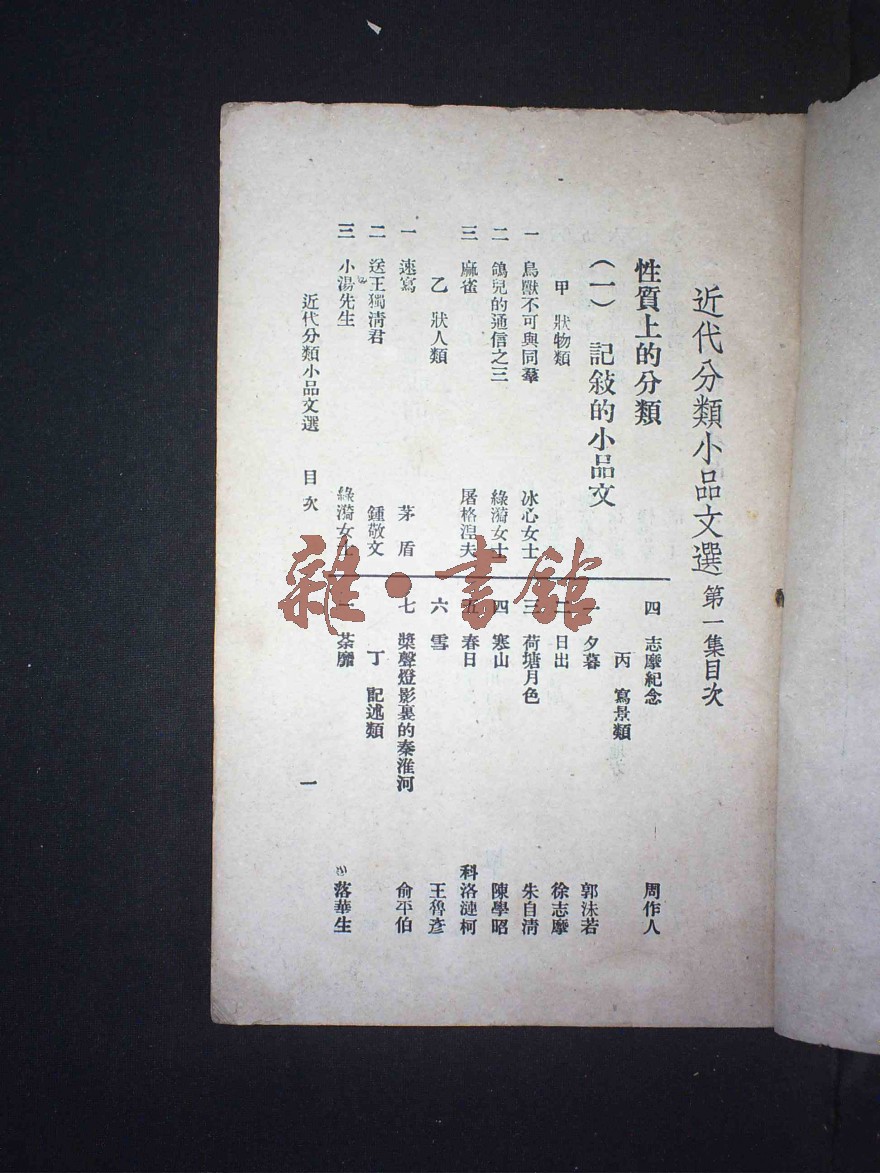 近代分類小品文選 第一集目次
性質上的分類
（一） 記敍的小品文
甲 狀物類
一 鳥獸不可與同羣 冰心女士
二 鴿兒的通信之三 綠漪女士
三 麻雀 屠格涅夫
乙 狀人類
一 速寫 茅盾
二 送王獨淸君 鍾敬文
三 小湯先生 綠漪女士
四 志摩紀念 周作人
丙 寫景類
一 夕暮 郭沫若
二 日出 徐志摩
三 荷塘月色 朱自淸
四 寒山 陳學昭
五 春日 科洛漣柯
六 雪 王魯彥
七 槳聲燈影裏的秦淮河 俞平伯
丁 記述類
一 荼蘼 落華生
近代分類小品文選 目次 一
雜·書館